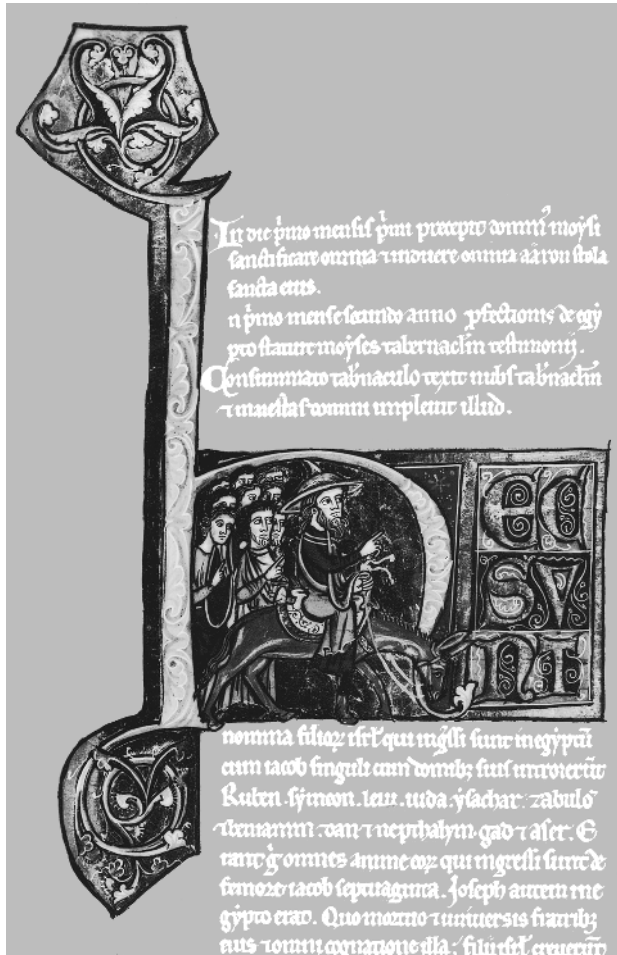 In die p̄mo mensis p̄mi precepto domini moysi
sanctificare omnia ⁊ induere omnia aaron stola
sancta eius.
n p̄mo mense secundo anno ꝓfectionis de egy
pto statuit moyses tabernacl̄m testimonij.
Consummato tab̄naculo texit nubs tab̄nacl̄m
⁊ maiestas domini impleuit illud.
H
EC
SV
NT
nomina filioꝝ isrl̄ qui ingr̄ssi sunt in egyptū
cum iacob singuli cum domibꝫ suis introierūt
Ruben. symeon. leui. iuda. ysachar. zabulō
⁊ beniamin. dan ⁊ nepthalym. gad ⁊ aser. E
rant ḡ omnes anime eoꝝ qui ingressi sunt de
femore iacob septuaginta. Joseph autem in e
gypto erat. Quo mortuo ⁊ uniuersis fratribꝫ
eius ⁊ omni cognatione illa; filii isrl̄ creuerūt